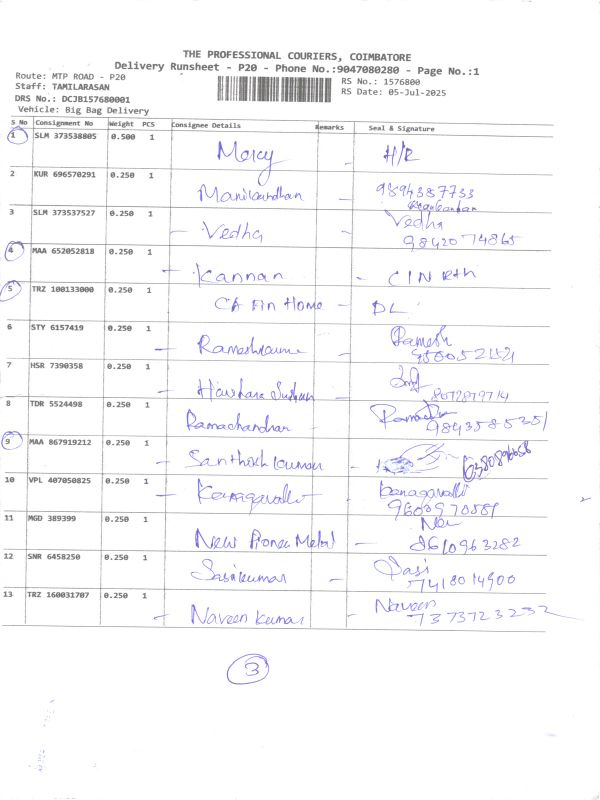 THE PROFESSIONAL COURIERS, COIMBATORE
Delivery Runsheet - P20 - Phone No.:9047080280 - Page No.:1
Route: MTP ROAD - P20
RS No.: 1576800
Staff: TAMILARASAN
RS Date: 05-Jul-2025
DRS No.: DCJB157680001
Vehicle: Big Bag Delivery
S No Consignment No Weight PCS Consignee Details Remarks Seal & Signature
1 SLM 373538805 0.500 1 Mercy - H/R
2 KUR 696570291 0.250 1 Manikandhan - 9894387733
3 SLM 373537527 0.250 1 - Vedha - Vedha
98420 74865
4 MAA 652052818 0.250 1 - Kannan - CIN
5 TRZ 100133000 0.250 1 CA Fin Home - DL
6 STY 6157419 0.250 1 - - Ramesh
7 HSR 7390358 0.250 1 -
8 TDR 5524498 0.250 1 Ramachandhar
9843585351
9 MAA 867919212 0.250 1 - Santhoshkumar -
10 VPL 407050825 0.250 1 - - Kanagavalli
11 MGD 389399 0.250 1 New Metal -
12 SNR 6458250 0.250 1 Sasikumar - Sasi
7418014900
13 TRZ 160031707 0.250 1 - Naveen Kumar - Naveen
7373723232
3